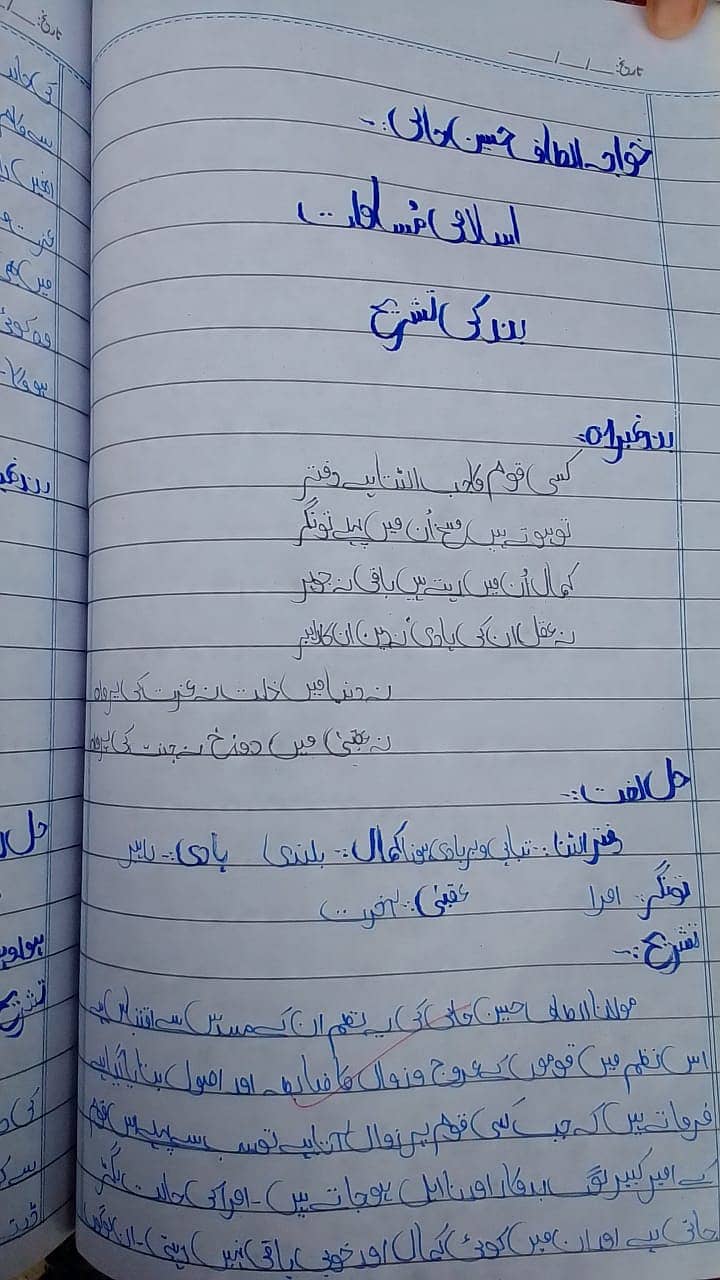 تاریخ: __/__/__
خواجہ الطاف حسین حالی:-
اسلامی مساوات
بند کی تشریح
بند نمبر 01:
کسی قوم کا جب الٹتا ہے دفتر
تو ہوتے ہیں مسخ اُن میں پہلے تونگر
کمال اُن میں رہتے ہیں باقی نہ جوہر
نہ عقل ان کی ہادی نہ دین ان کا رہبر
نہ دنیا میں ذلت نہ عزت کی پرواہ
نہ عقبیٰ میں دوزخ نہ جنت کی پرواہ
حل لغت:-
دفتر الٹنا:- تباہی و بربادی ہونا کمال:- بلندی ہادی:- رہبر
تونگر: امرا عقبیٰ:- آخرت
تشریح:-
مولانا الطاف حسین حالی کی یہ نظم ان کے مسدس سے اقتباس ہے
اس نظم میں قوموں کے عروج و زوال کا ضابطہ اور اصول بتایا گیا ہے
فرماتے ہیں کہ جب کسی قوم پر زوال آتا ہے تو سب سے پہلے اس قوم
کے امیر کبیر لوگ بدکار اور نااہل ہو جاتے ہیں - امرا کی حالت بگڑ
جاتی ہے اور ان میں کوئی کمال اور خوبی باقی نہیں رہتی - ان لوگوں